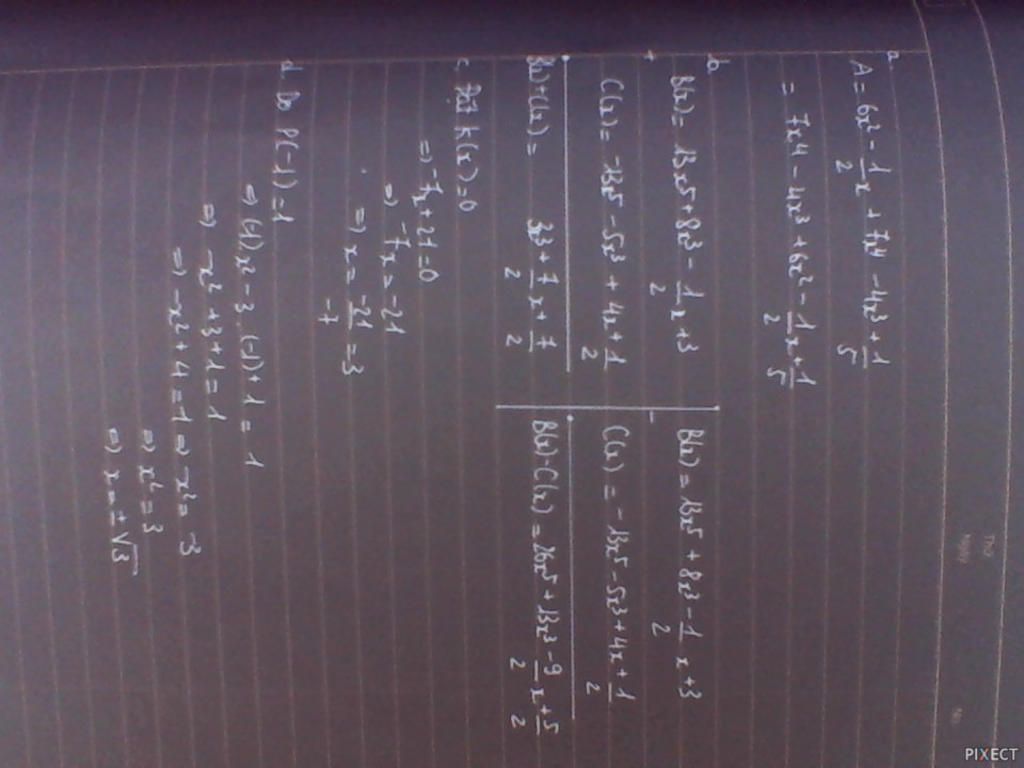 a.
A = 6x² - 1/2 x + 7x4 - 4x³ + 1/5
= 7x4 - 4x³ + 6x² - 1/2 x + 1/5
b.
+ B(x) = 13x5 + 8x³ - 1/2 x + 3
C(x) = -13x5 - 5x³ + 4x + 1/2
B(x) + C(x) = 3x³ + 7/2 x + 7/2
- B(x) = 13x5 + 8x³ - 1/2 x + 3
C(x) = -13x5 - 5x³ + 4x + 1/2
B(x) - C(x) = 26x5 + 13x³ - 9/2 x + 5/2
c. Đặt K(x) = 0
⇒ -7x + 21 = 0
⇒ -7x = -21
⇒ x = -21/-7 = 3
d. Do P(-1) = 1
⇒ (-1)x² - 3.(-1) + 1 = 1
⇒ -x² + 3 + 1 = 1
⇒ -x² + 4 = 1 ⇒ -x² = -3
⇒ x² = 3
⇒ x = ±√3
PIXECT